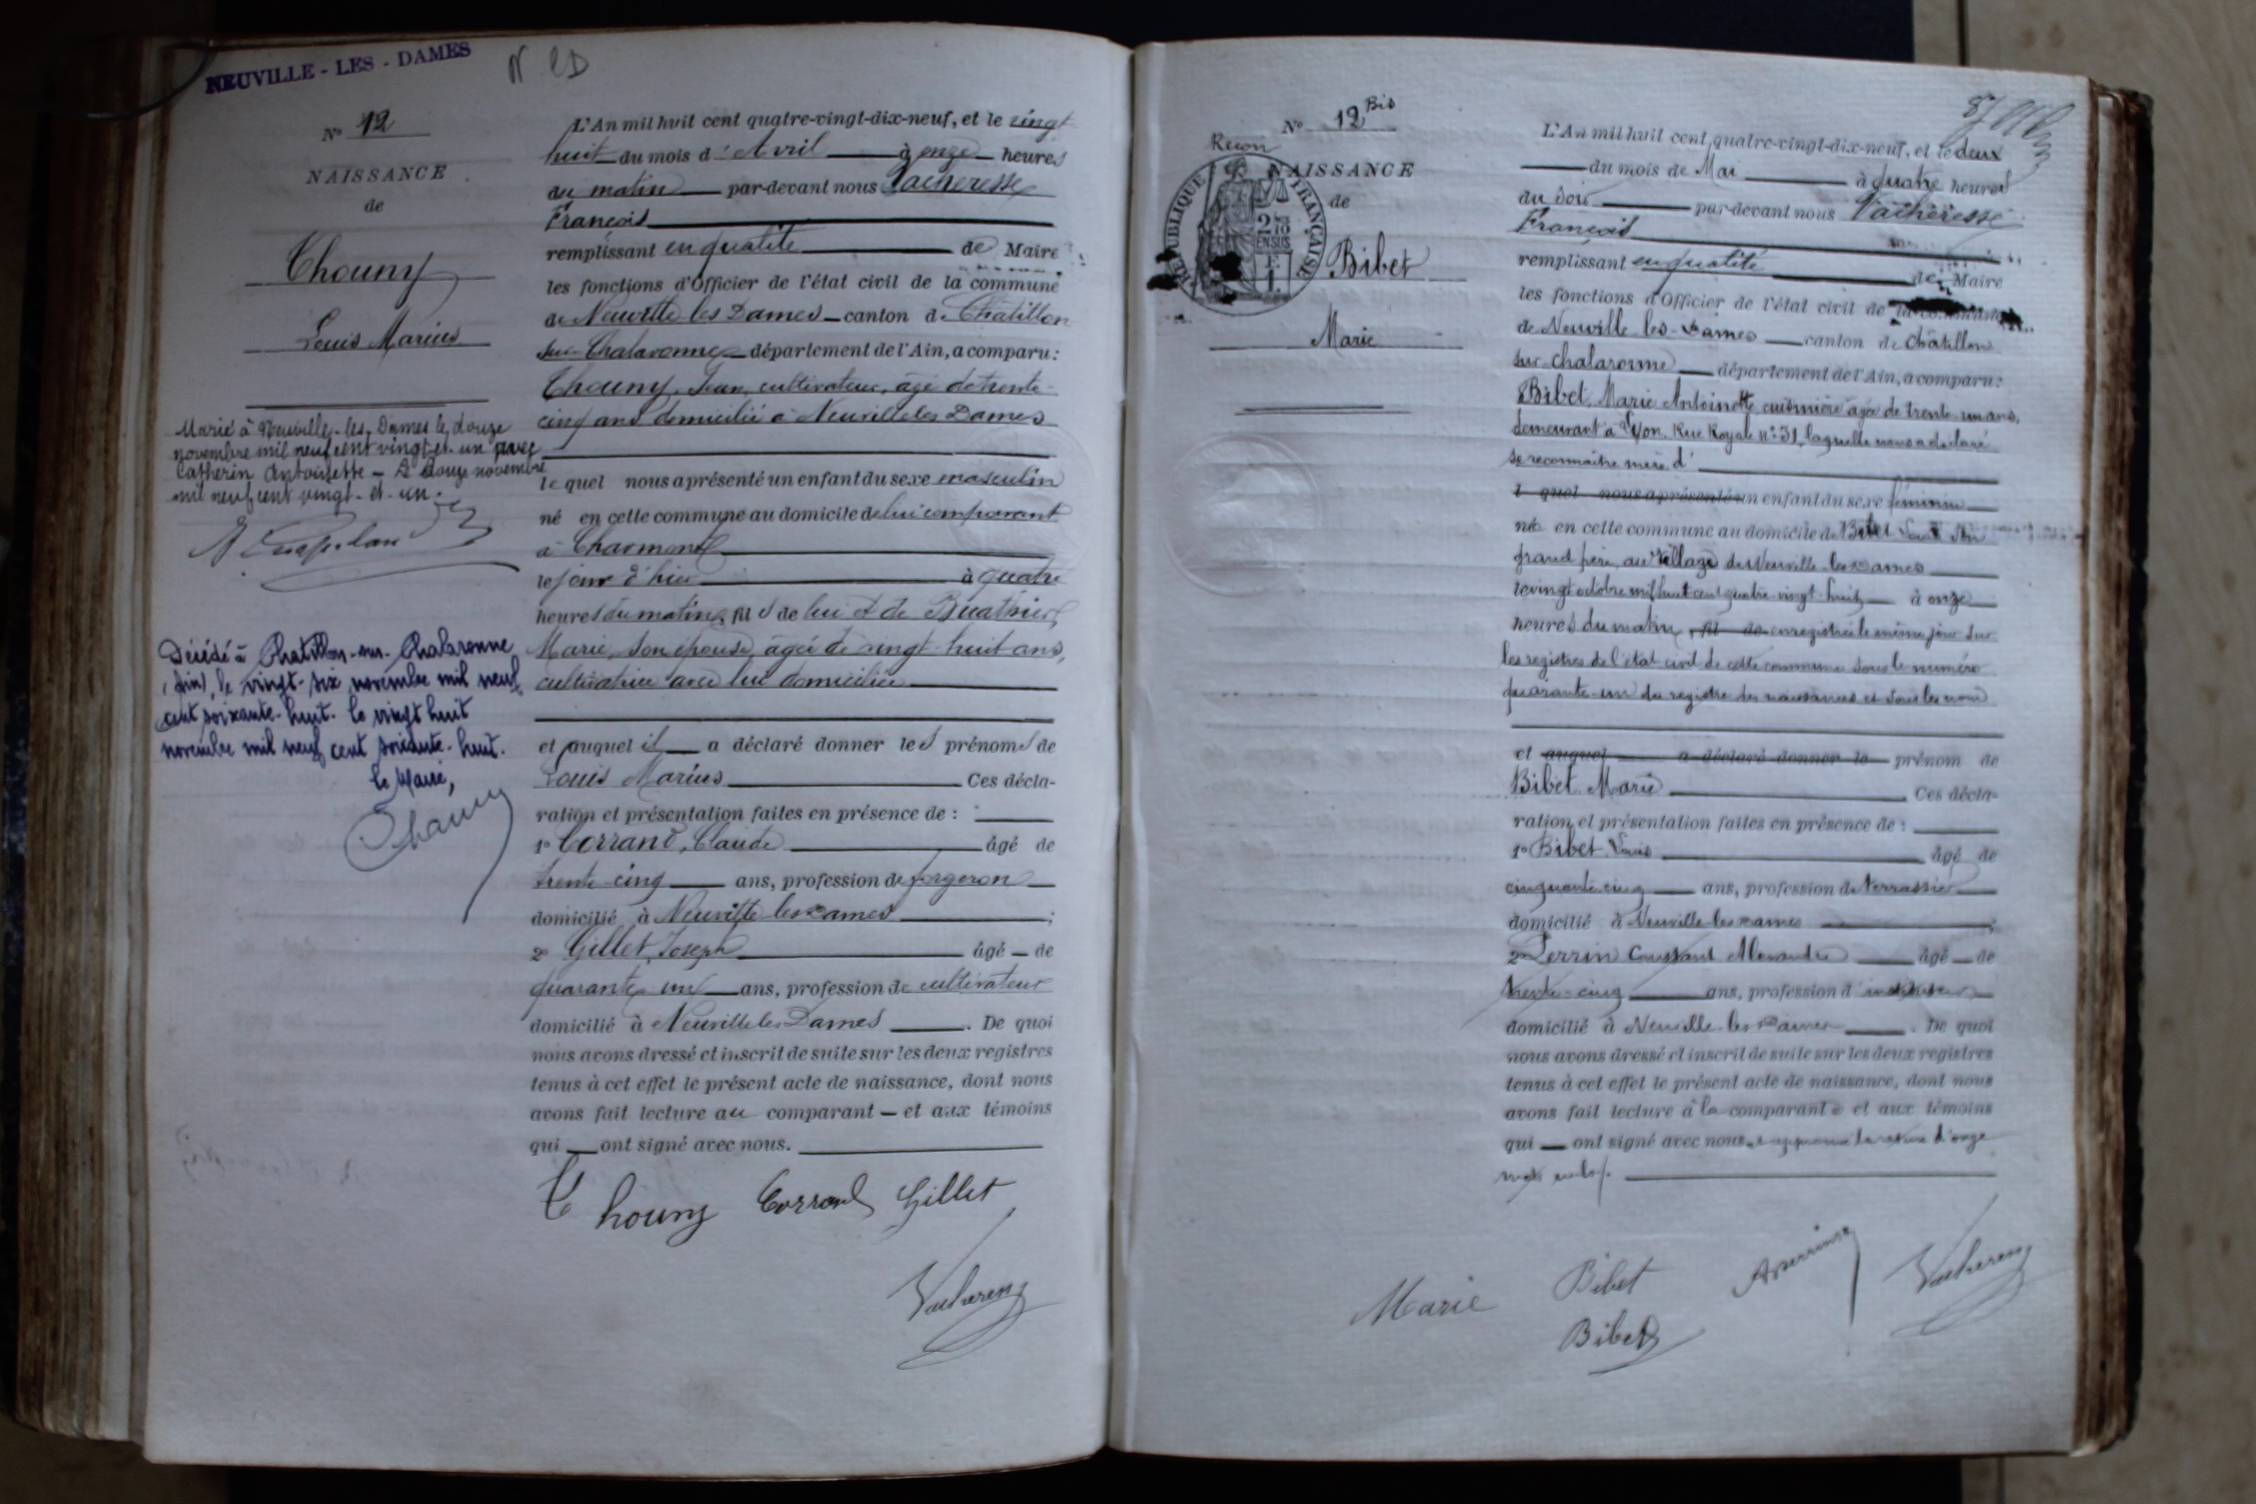 NEUVILLE - LES - DAMES
N° 12
NAISSANCE
de
Thouny
Louis Marius
Marié à Neuville-les-Dames le douze
novembre mil neuf cent vingt-et-un avec
Catherin Antoinette - Le douze novembre
mil neuf cent vingt-et-un.
Décédé à Chatillon-sur-Chalaronne
(Ain), le vingt-six novembre mil neuf
cent soixante-huit. le vingt huit
novembre mil neuf cent soixante-huit.
le Maire,
L'An mil huit cent quatre-vingt-dix-neuf, et le vingt
huit du mois d'Avril à onze heures
du matin par-devant nous Vacheresse
François
remplissant en qualité de Maire
les fonctions d'Officier de l'état civil de la commune
de Neuville les Dames canton de Châtillon
sur Chalaronne département de l'Ain, a comparu :
Thouny, Jean, cultivateur, âgé de trente-
cinq ans domicilié à Neuville les Dames
le quel nous a présenté un enfant du sexe masculin
né en cette commune au domicile de lui comparant
à Charmont
le jour d'hier à quatre
heures du matin, fils de lui et de
Marie, son épouse, âgée de vingt-huit ans,
cultivatrice avec lui domiciliée
et auquel il a déclaré donner les prénoms de
Louis Marius Ces décla-
ration et présentation faites en présence de :
1° Corrand, Claude âgé de
trente-cinq ans, profession de forgeron
domicilié à Neuville les Dames ;
2° Gillet, Joseph âgé de
quarante un ans, profession de cultivateur
domicilié à Neuville les Dames . De quoi
nous avons dressé et inscrit de suite sur les deux registres
tenus à cet effet le présent acte de naissance, dont nous
avons fait lecture au comparant et aux témoins
qui ont signé avec nous.
Thouny Corrand Gillet
N° 12 Bis
Recon
NAISSANCE
de
RÉPUBLIQUE FRANÇAISE
2/10 EN SUS
Bibet
Marie
L'An mil huit cent quatre-vingt-dix-neuf, et le deux
du mois de Mai à quatre heures
du soir par-devant nous Vacheresse
François
remplissant en qualité de Maire
les fonctions d'Officier de l'état civil de la commune
de Neuville-les-Dames canton de Châtillon
sur-Chalaronne département de l'Ain, a comparu :
Bibet, Marie Antoinette cuisinière âgée de trente-un ans,
demeurant à Lyon, Rue Royale n° 31, laquelle nous a déclaré
se reconnaître mère d'
l quel nous a présenté un enfant du sexe féminin
née en cette commune au domicile de Bibet Louis son
grand père, au village de Neuville-les-Dames
le vingt octobre mil huit cent quatre-vingt-huit à onze
heures du matin, fil de enregistrée le même jour sur
les registres de l'état civil de cette commune sous le numéro
quarante-un du registre des naissances et sous les nom
et auquel a déclaré donner le prénom de
Bibet Marie Ces décla-
ration et présentation faites en présence de :
1° Bibet Louis âgé de
cinquante cinq ans, profession de terrassier
domicilié à Neuville-les-Dames ;
2° Perrin Constant Alexandre âgé de
trente-cinq ans, profession d'instituteur
domicilié à Neuville-les-Dames . De quoi
nous avons dressé et inscrit de suite sur les deux registres
tenus à cet effet le présent acte de naissance, dont nous
avons fait lecture à la comparante et aux témoins
qui ont signé avec nous d'onze
mots
Marie Bibet
Bibet